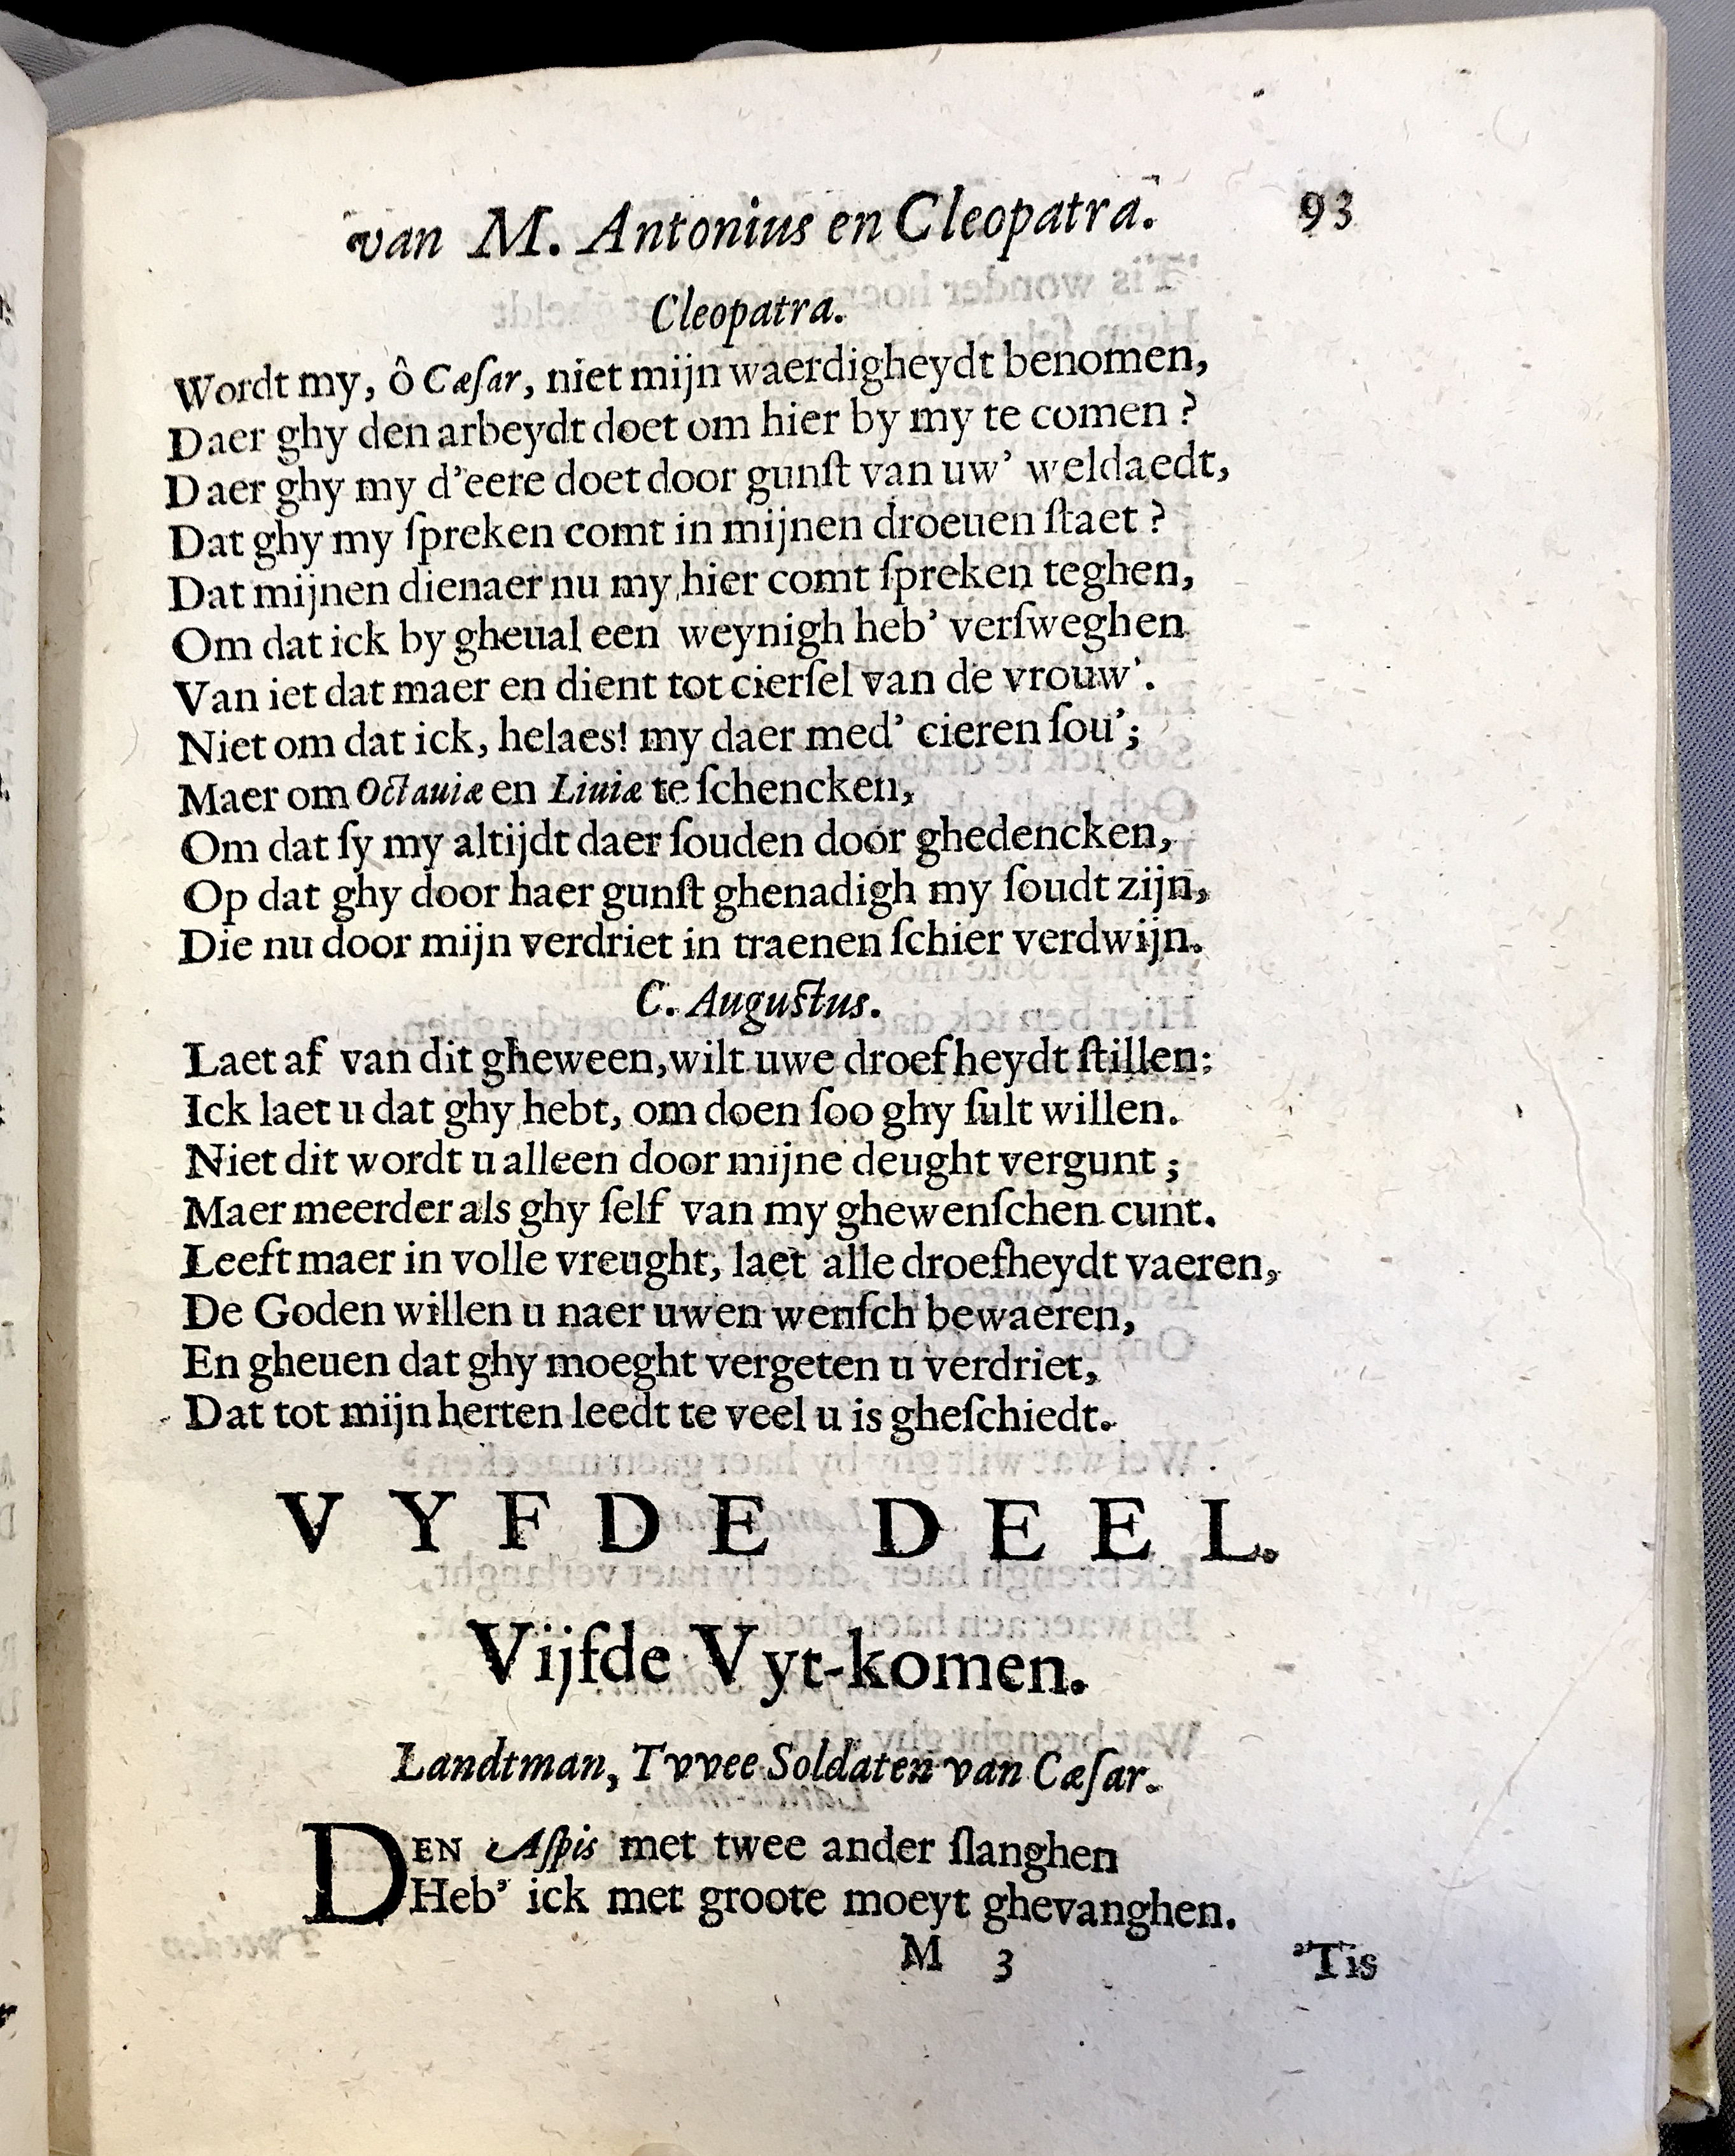 van M. Antonius en Cleopatra. 93
Cleopatra.
Wordt my, ô Cæſar, niet mijn waerdigheydt benomen,
Daer ghy den arbeydt doet om hier by my te comen ?
Daer ghy my d'eere doet door gunſt van uw' weldaedt,
Dat ghy my ſpreken comt in mijnen droeuen ſtaet ?
Dat mijnen dienaer nu my hier comt ſpreken teghen,
Om dat ick by gheual een weynigh heb' verſweghen
Van iet dat maer en dient tot cierſel van de vrouw'.
Niet om dat ick, helaes! my daer med' cieren ſou';
Maer om Octauiæ en Liuiæ te ſchencken,
Om dat ſy my altijdt daer ſouden door ghedencken,
Op dat ghy door haer gunſt ghenadigh my ſoudt zijn,
Die nu door mijn verdriet in traenen ſchier verdwijn.
C. Auguſtus.
Laet af van dit gheween, wilt uwe droefheydt ſtillen:
Ick laet u dat ghy hebt, om doen ſoo ghy ſult willen.
Niet dit wordt u alleen door mijne deught vergunt ;
Maer meerder als ghy ſelf van my ghewenſchen cunt.
Leeft maer in volle vreught, laet alle droefheydt vaeren,
De Goden willen u naer uwen wenſch bewaeren,
En gheuen dat ghy moeght vergeten u verdriet,
Dat tot mijn herten leedt te veel u is gheſchiedt.
VYFDE DEEL.
Vijfde Vyt-komen.
Landtman, Tvvee Soldaten van Cæſar.
DEN Aſpis met twee ander ſlanghen
Heb' ick met groote moeyt ghevanghen.
M 3 'Tis